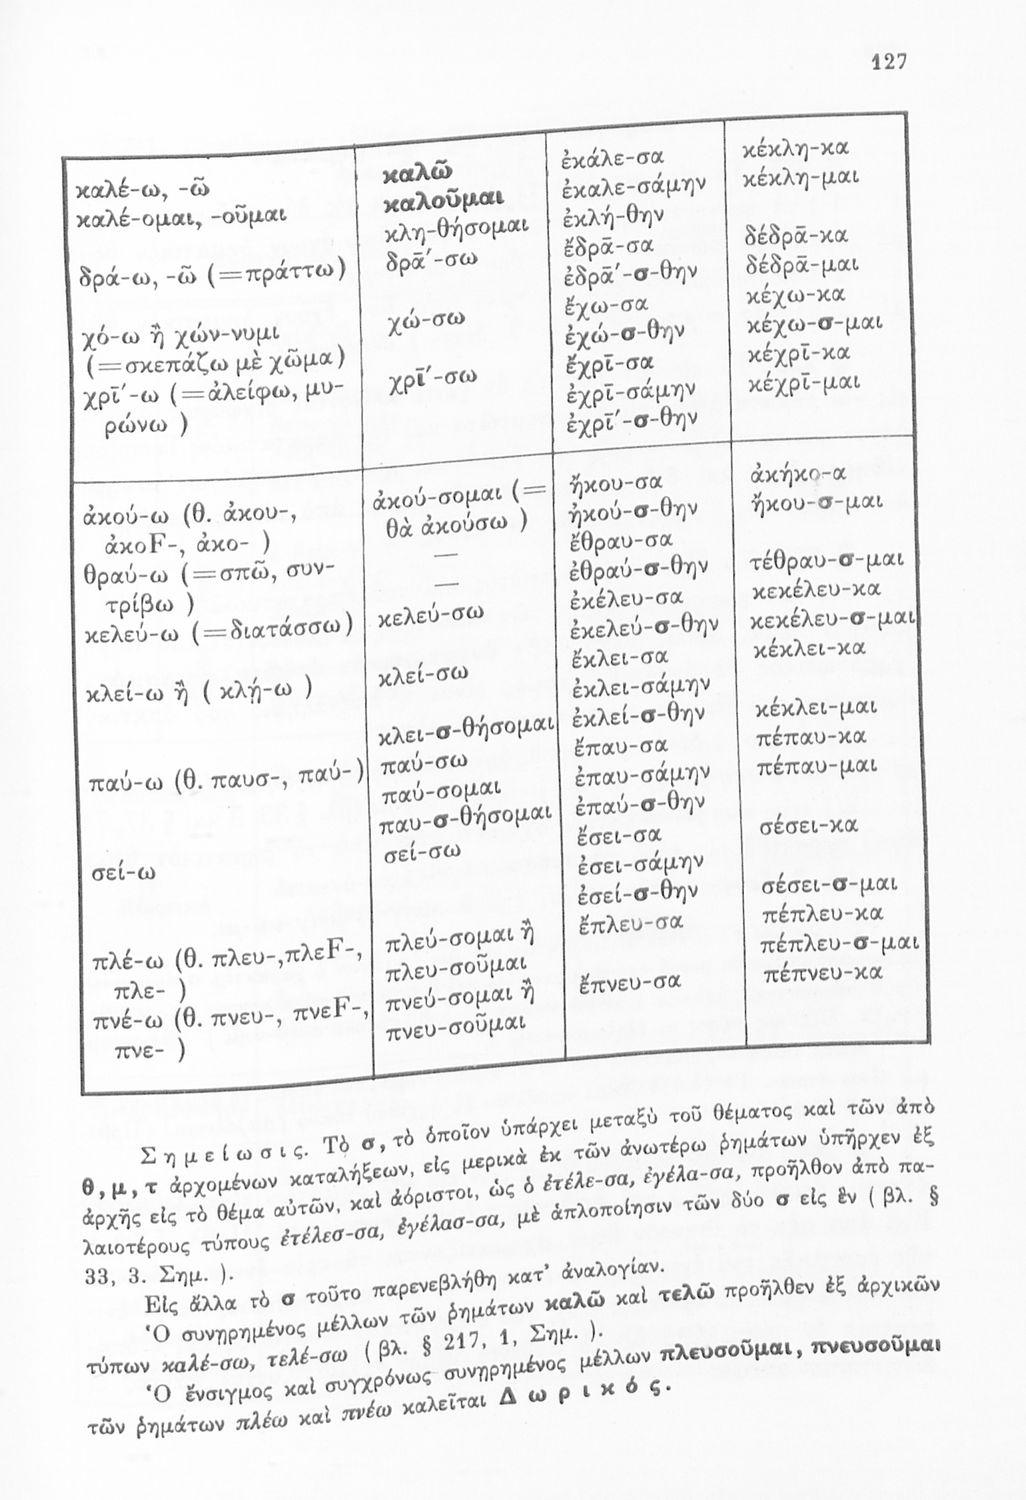 127
καλέ-ω, -ῶ
καλέ-ομαι, -οῦμαι
δρά-ω, -ῶ (=πράττω)
χό-ω ἢ χών-νυμι
(=σκεπάζω μὲ χῶμα)
χρί̄-ω (=ἀλείφω, μυ-
ρώνω )
καλῶ
καλοῦμαι
κλη-θήσομαι
δρά̄-σω
χώ-σω
χρί̄-σω
ἐκάλε-σα
ἐκαλε-σάμην
ἐκλή-θην
ἔδρᾱ-σα
ἐδρά̄-σ-θην
ἔχω-σα
ἐχώ-σ-θην
ἔχρῑ-σα
ἐχρῑ-σάμην
ἐχρί̄-σ-θην
κέκλη-κα
κέκλη-μαι
δέδρᾱ-κα
δέδρᾱ-μαι
κέχω-κα
κέχω-σ-μαι
κέχρῑ-κα
κέχρῑ-μαι
ἀκού-ω (θ. ἀκου-,
ἀκοF-, ἀκο- )
θραύ-ω (=σπῶ, συν-
τρίβω )
κελεύ-ω (=διατάσσω)
κλεί-ω ἢ ( κλῄ-ω )
παύ-ω (θ. παυσ-, παύ-)
σεί-ω
πλέ-ω (θ. πλευ-,πλεF-,
πλε- )
πνέ-ω (θ. πνευ-, πνεF-,
πνε- )
ἀκού-σομαι (=
θὰ ἀκούσω )
—
—
κελεύ-σω
κλεί-σω
κλει-σ-θήσομαι
παύ-σω
παύ-σομαι
παυ-σ-θήσομαι
σεί-σω
πλεύ-σομαι ἢ
πλευ-σοῦμαι
πνεύ-σομαι ἢ
πνευ-σοῦμαι
ἤκου-σα
ἠκού-σ-θην
ἔθραυ-σα
ἐθραύ-σ-θην
ἐκέλευ-σα
ἐκελεύ-σ-θην
ἔκλει-σα
ἐκλει-σάμην
ἐκλεί-σ-θην
ἔπαυ-σα
ἐπαυ-σάμην
ἐπαύ-σ-θην
ἔσει-σα
ἐσει-σάμην
ἐσεί-σ-θην
ἔπλευ-σα
ἔπνευ-σα
ἀκήκο-α
ἤκου-σ-μαι
τέθραυ-σ-μαι
κεκέλευ-κα
κεκέλευ-σ-μαι
κέκλει-κα
κέκλει-μαι
πέπαυ-κα
πέπαυ-μαι
σέσει-κα
σέσει-σ-μαι
πέπλευ-κα
πέπλευ-σ-μαι
πέπνευ-κα
Σημείωσις. Τὸ σ, τὸ ὁποῖον ὑπάρχει μεταξὺ τοῦ θέματος καὶ τῶν ἀπὸ
θ, μ, τ ἀρχομένων καταλήξεων, εἰς μερικὰ ἐκ τῶν ἀνωτέρω ῥημάτων ὑπῆρχεν ἐξ
ἀρχῆς εἰς τὸ θέμα αὐτῶν, καὶ ἀόριστοι, ὡς ὁ ἐτέλε-σα, ἐγέλα-σα, προῆλθον ἀπὸ πα-
λαιοτέρους τύπους ἐτέλεσ-σα, ἐγέλασ-σα, μὲ ἁπλοποίησιν τῶν δύο σ εἰς ἓν ( βλ. §
33, 3. Σημ. ).
Εἰς ἄλλα τὸ σ τοῦτο παρενεβλήθη κατ' ἀναλογίαν.
Ὁ συνῃρημένος μέλλων τῶν ῥημάτων καλῶ καὶ τελῶ προῆλθεν ἐξ ἀρχικῶν
τύπων καλέ-σω, τελέ-σω ( βλ. § 217, 1, Σημ. ).
Ὁ ἔνσιγμος καὶ συγχρόνως συνῃρημένος μέλλων πλευσοῦμαι, πνευσοῦμαι
τῶν ῥημάτων πλέω καὶ πνέω καλεῖται Δωρικός.